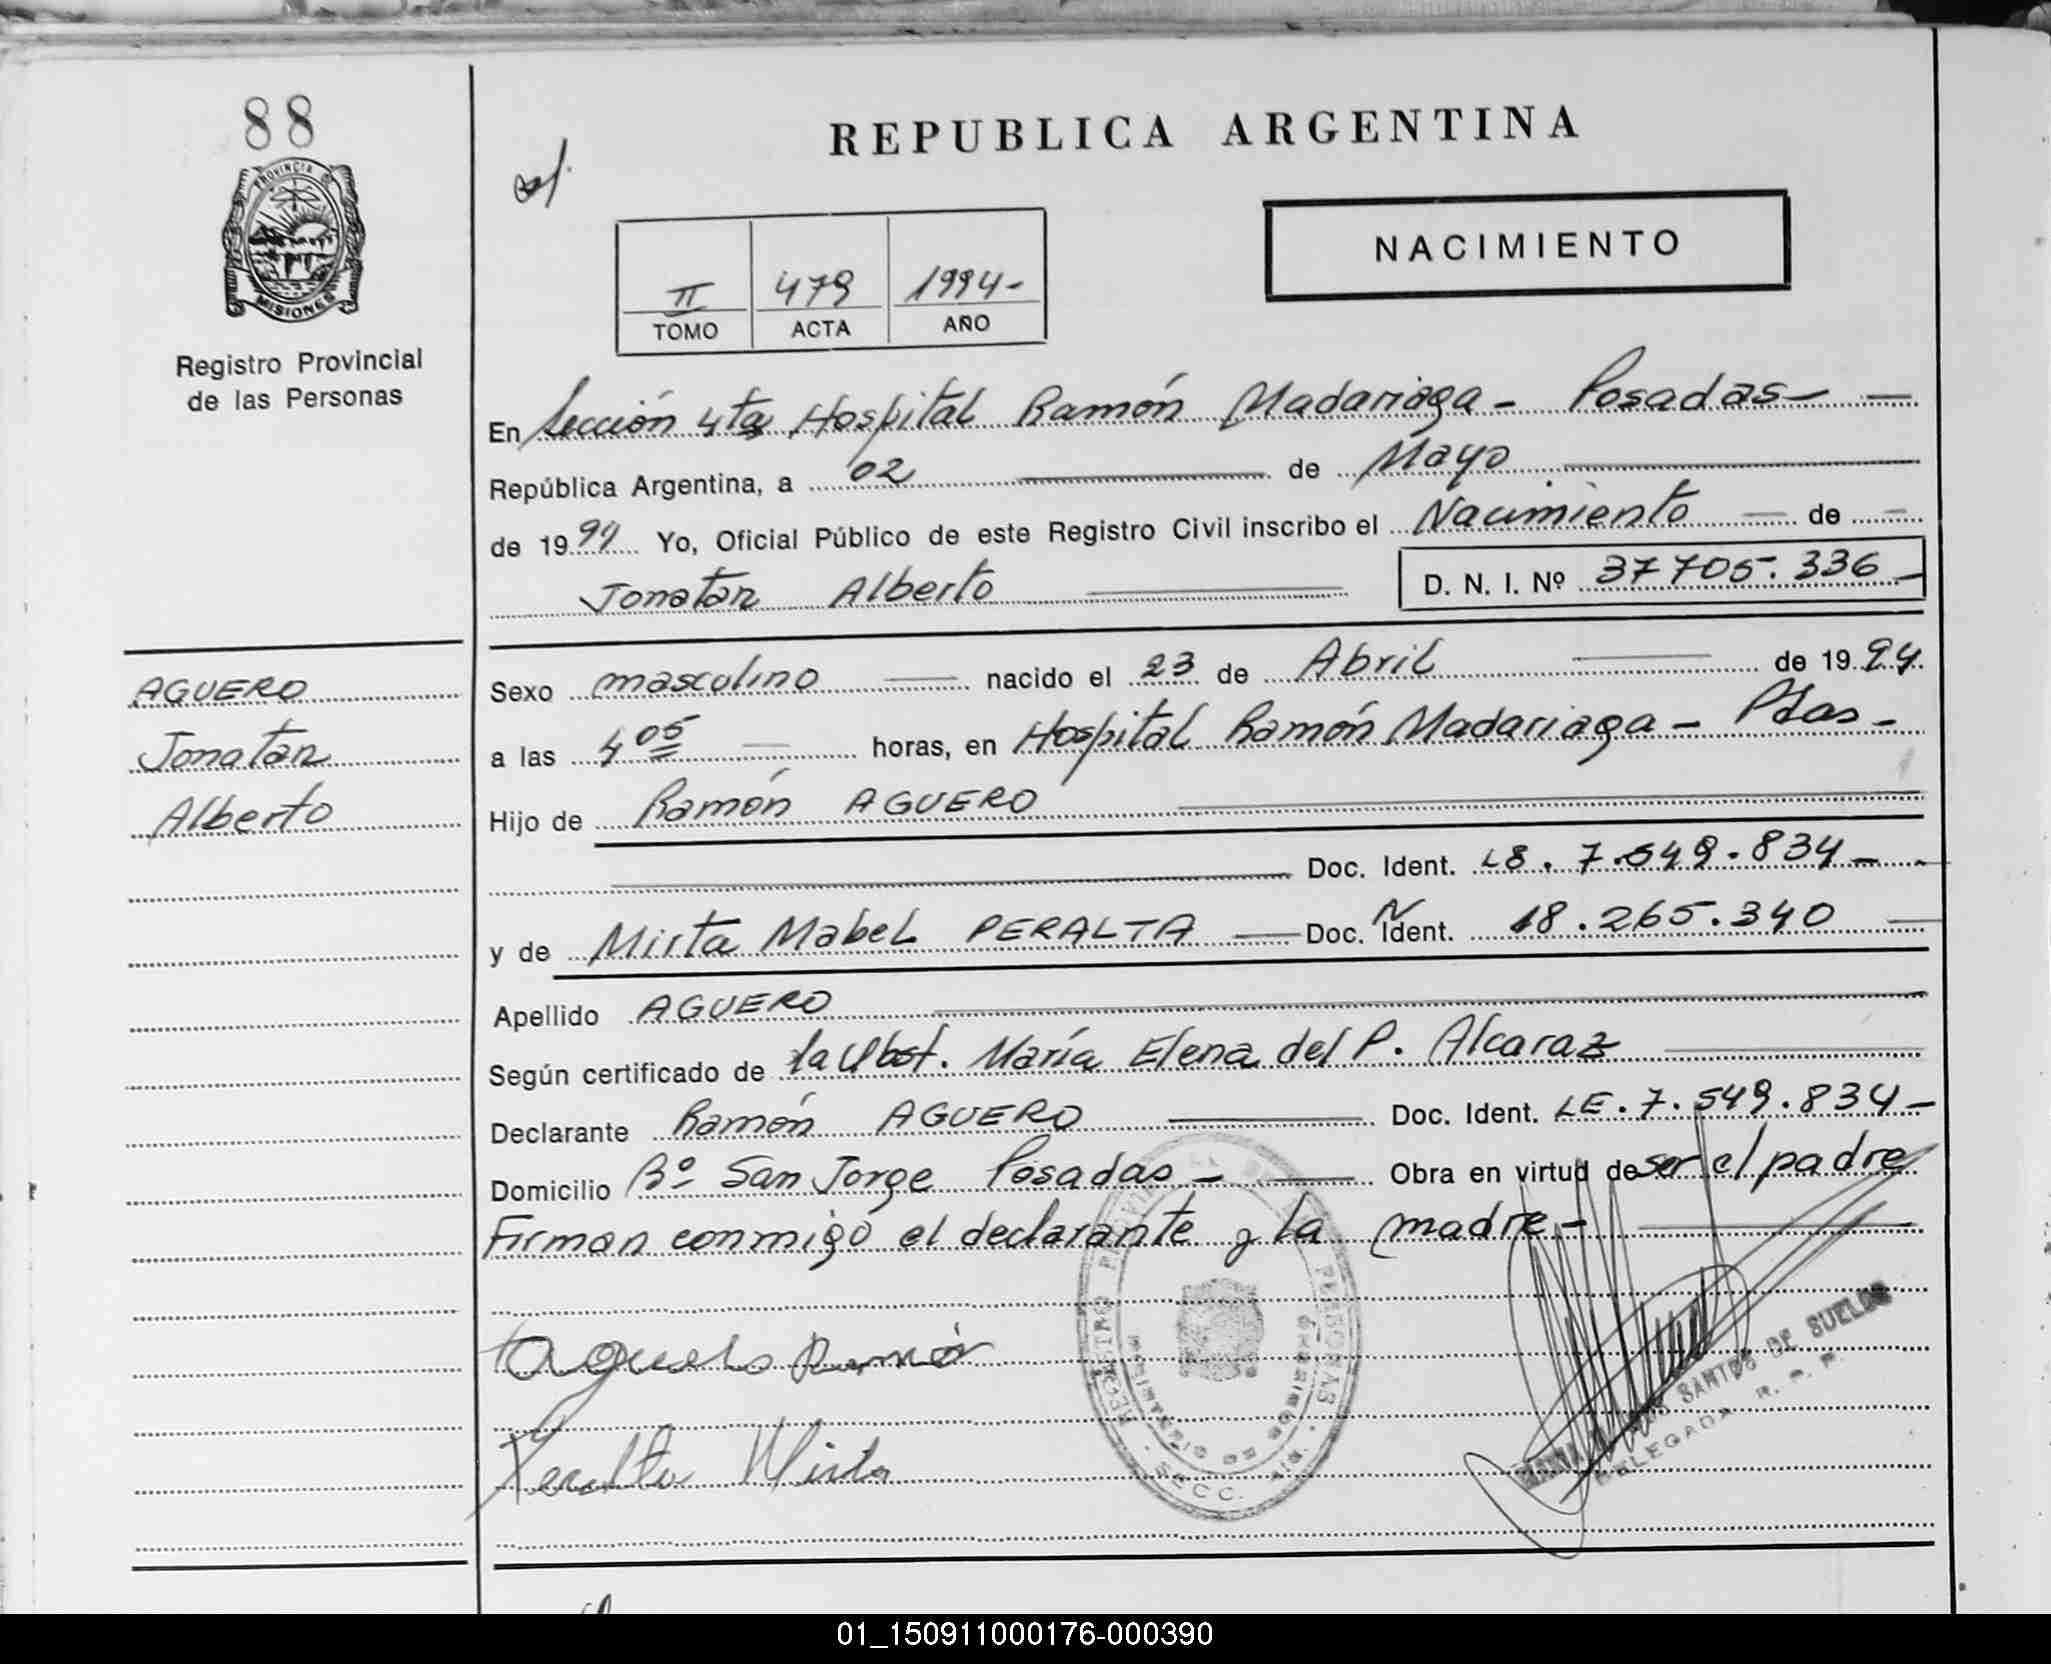 88
PROVINCIA DE
MISIONES
Registro Provincial
de las Personas
REPUBLICA ARGENTINA
NACIMIENTO
II 479 1994-
TOMO ACTA AÑO
En Sección 4ta Hospital Ramón Madariaga - Posadas -
República Argentina, a 02 de Mayo
de 1994 Yo, Oficial Público de este Registro Civil inscribo el Nacimiento de
Jonatan Alberto D. N. I. Nº 37705.336
AGUERO
Jonatan
Alberto
Sexo masculino nacido el 23 de Abril de 1994.
a las 4 05 horas, en Hospital Ramón Madariaga - Pdas -
Hijo de Ramón AGUERO
Doc. Ident. L8. 7.549.834 -
y de Mirta Mabel PERALTA Doc. N Ident. 18.265.340
Apellido AGUERO
Según certificado de la Obst. María Elena del P. Alcaraz
Declarante Ramón AGUERO Doc. Ident. LE. 7.549.834 -
Domicilio Bº San Jorge Posadas - Obra en virtud de ser el padre
Firman conmigo el declarante y la madre -
Aguero Ramón
Peralta Mirta
SANTOS DE SUELDO
DELEGADA R. P. P.
SECC.
01_150911000176-000390